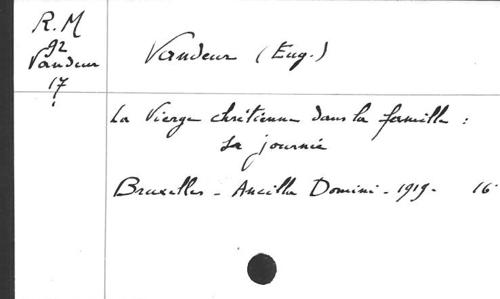 R.M
92
Vandeur
17
Vandeur (Eug.)
La Vierge chrétienne dans la famille :
Sa journée
Bruxelles - Ancilla Domini - 1919 - 16